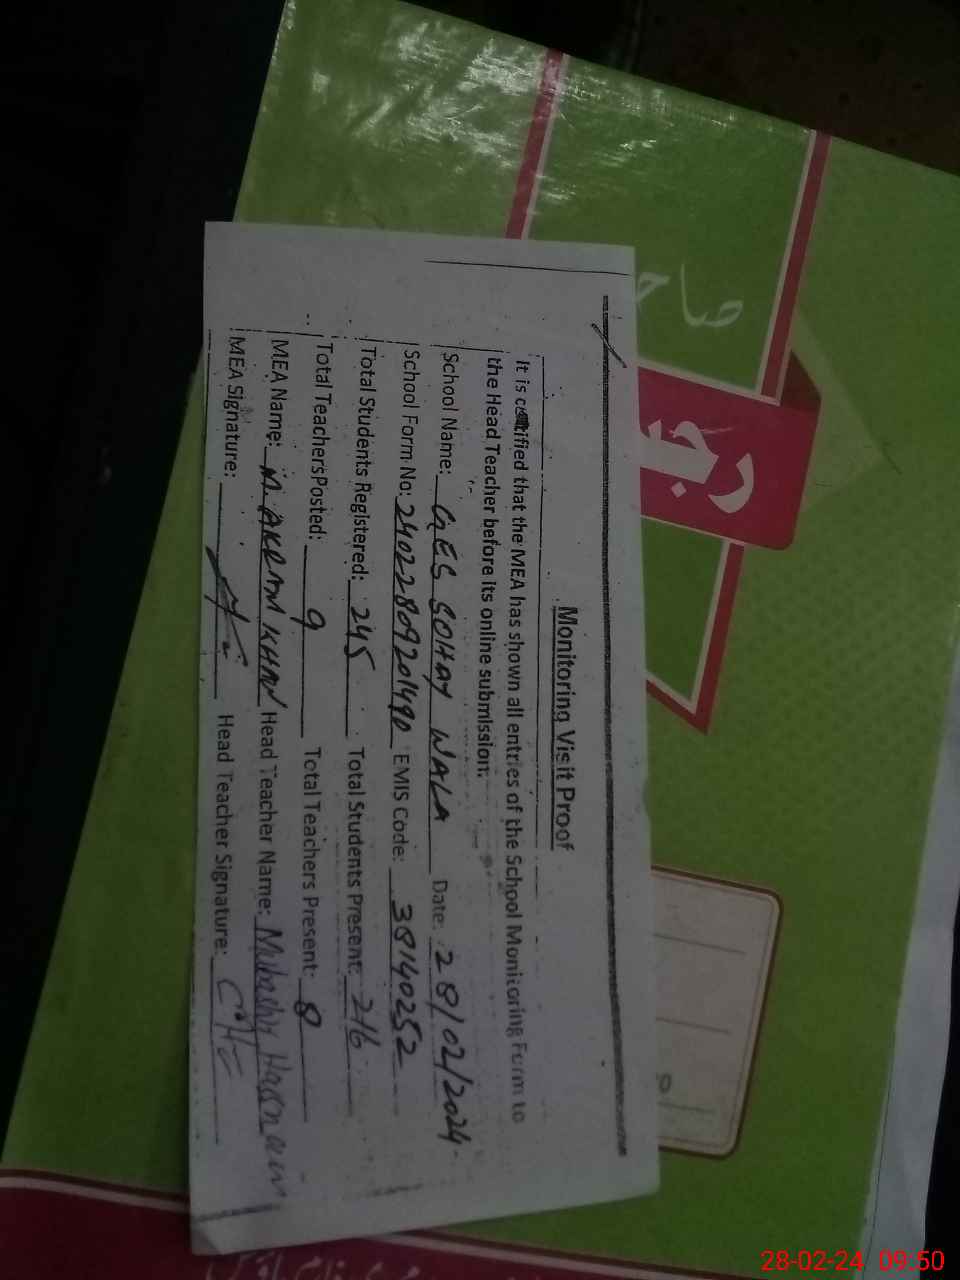 Monitoring Visit Proof
It is certified that the MEA has shown all entries of the School Monitoring Form to
the Head Teacher before its online submission.
School Name: GES SOHAY WALA Date: 28/02/2024
School Form No: 24022809201490 EMIS Code: 38140252
Total Students Registered: 245 Total Students Present: 216
Total Teachers Posted: 9 Total Teachers Present: 8
MEA Name: M. AKRAM KHAN Head Teacher Name: Mubashir Hasnain
MEA Signature: Head Teacher Signature:
28-02-24 09:50